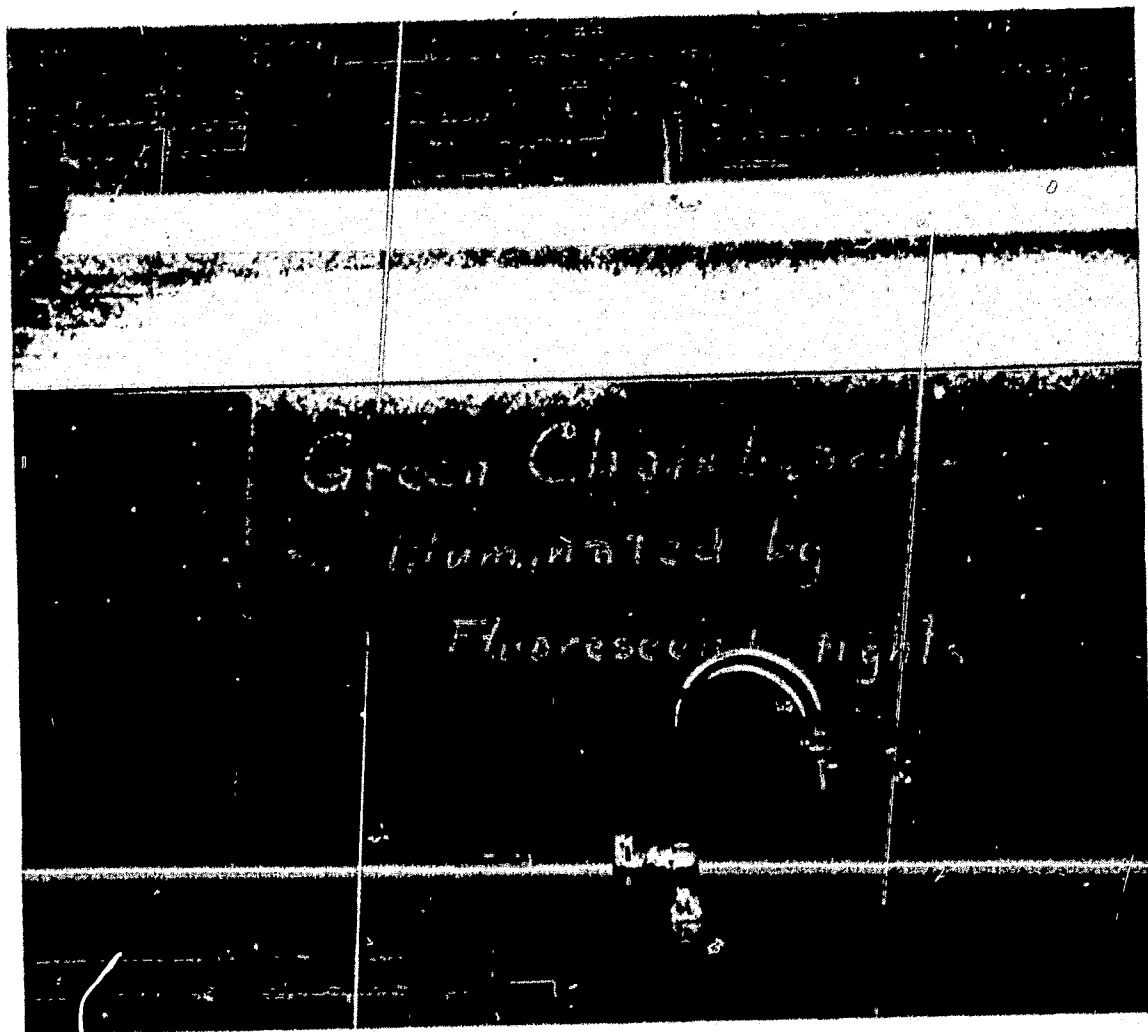 Green Chalkboard
Illuminated by
Fluorescent Lights